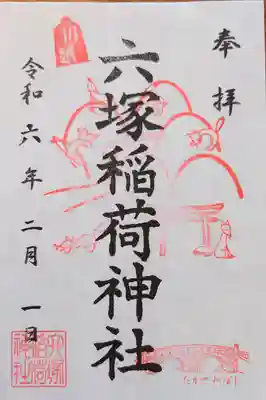 奉拝
六塚稲荷神社
令和六年二月一日
六塚稲荷神社